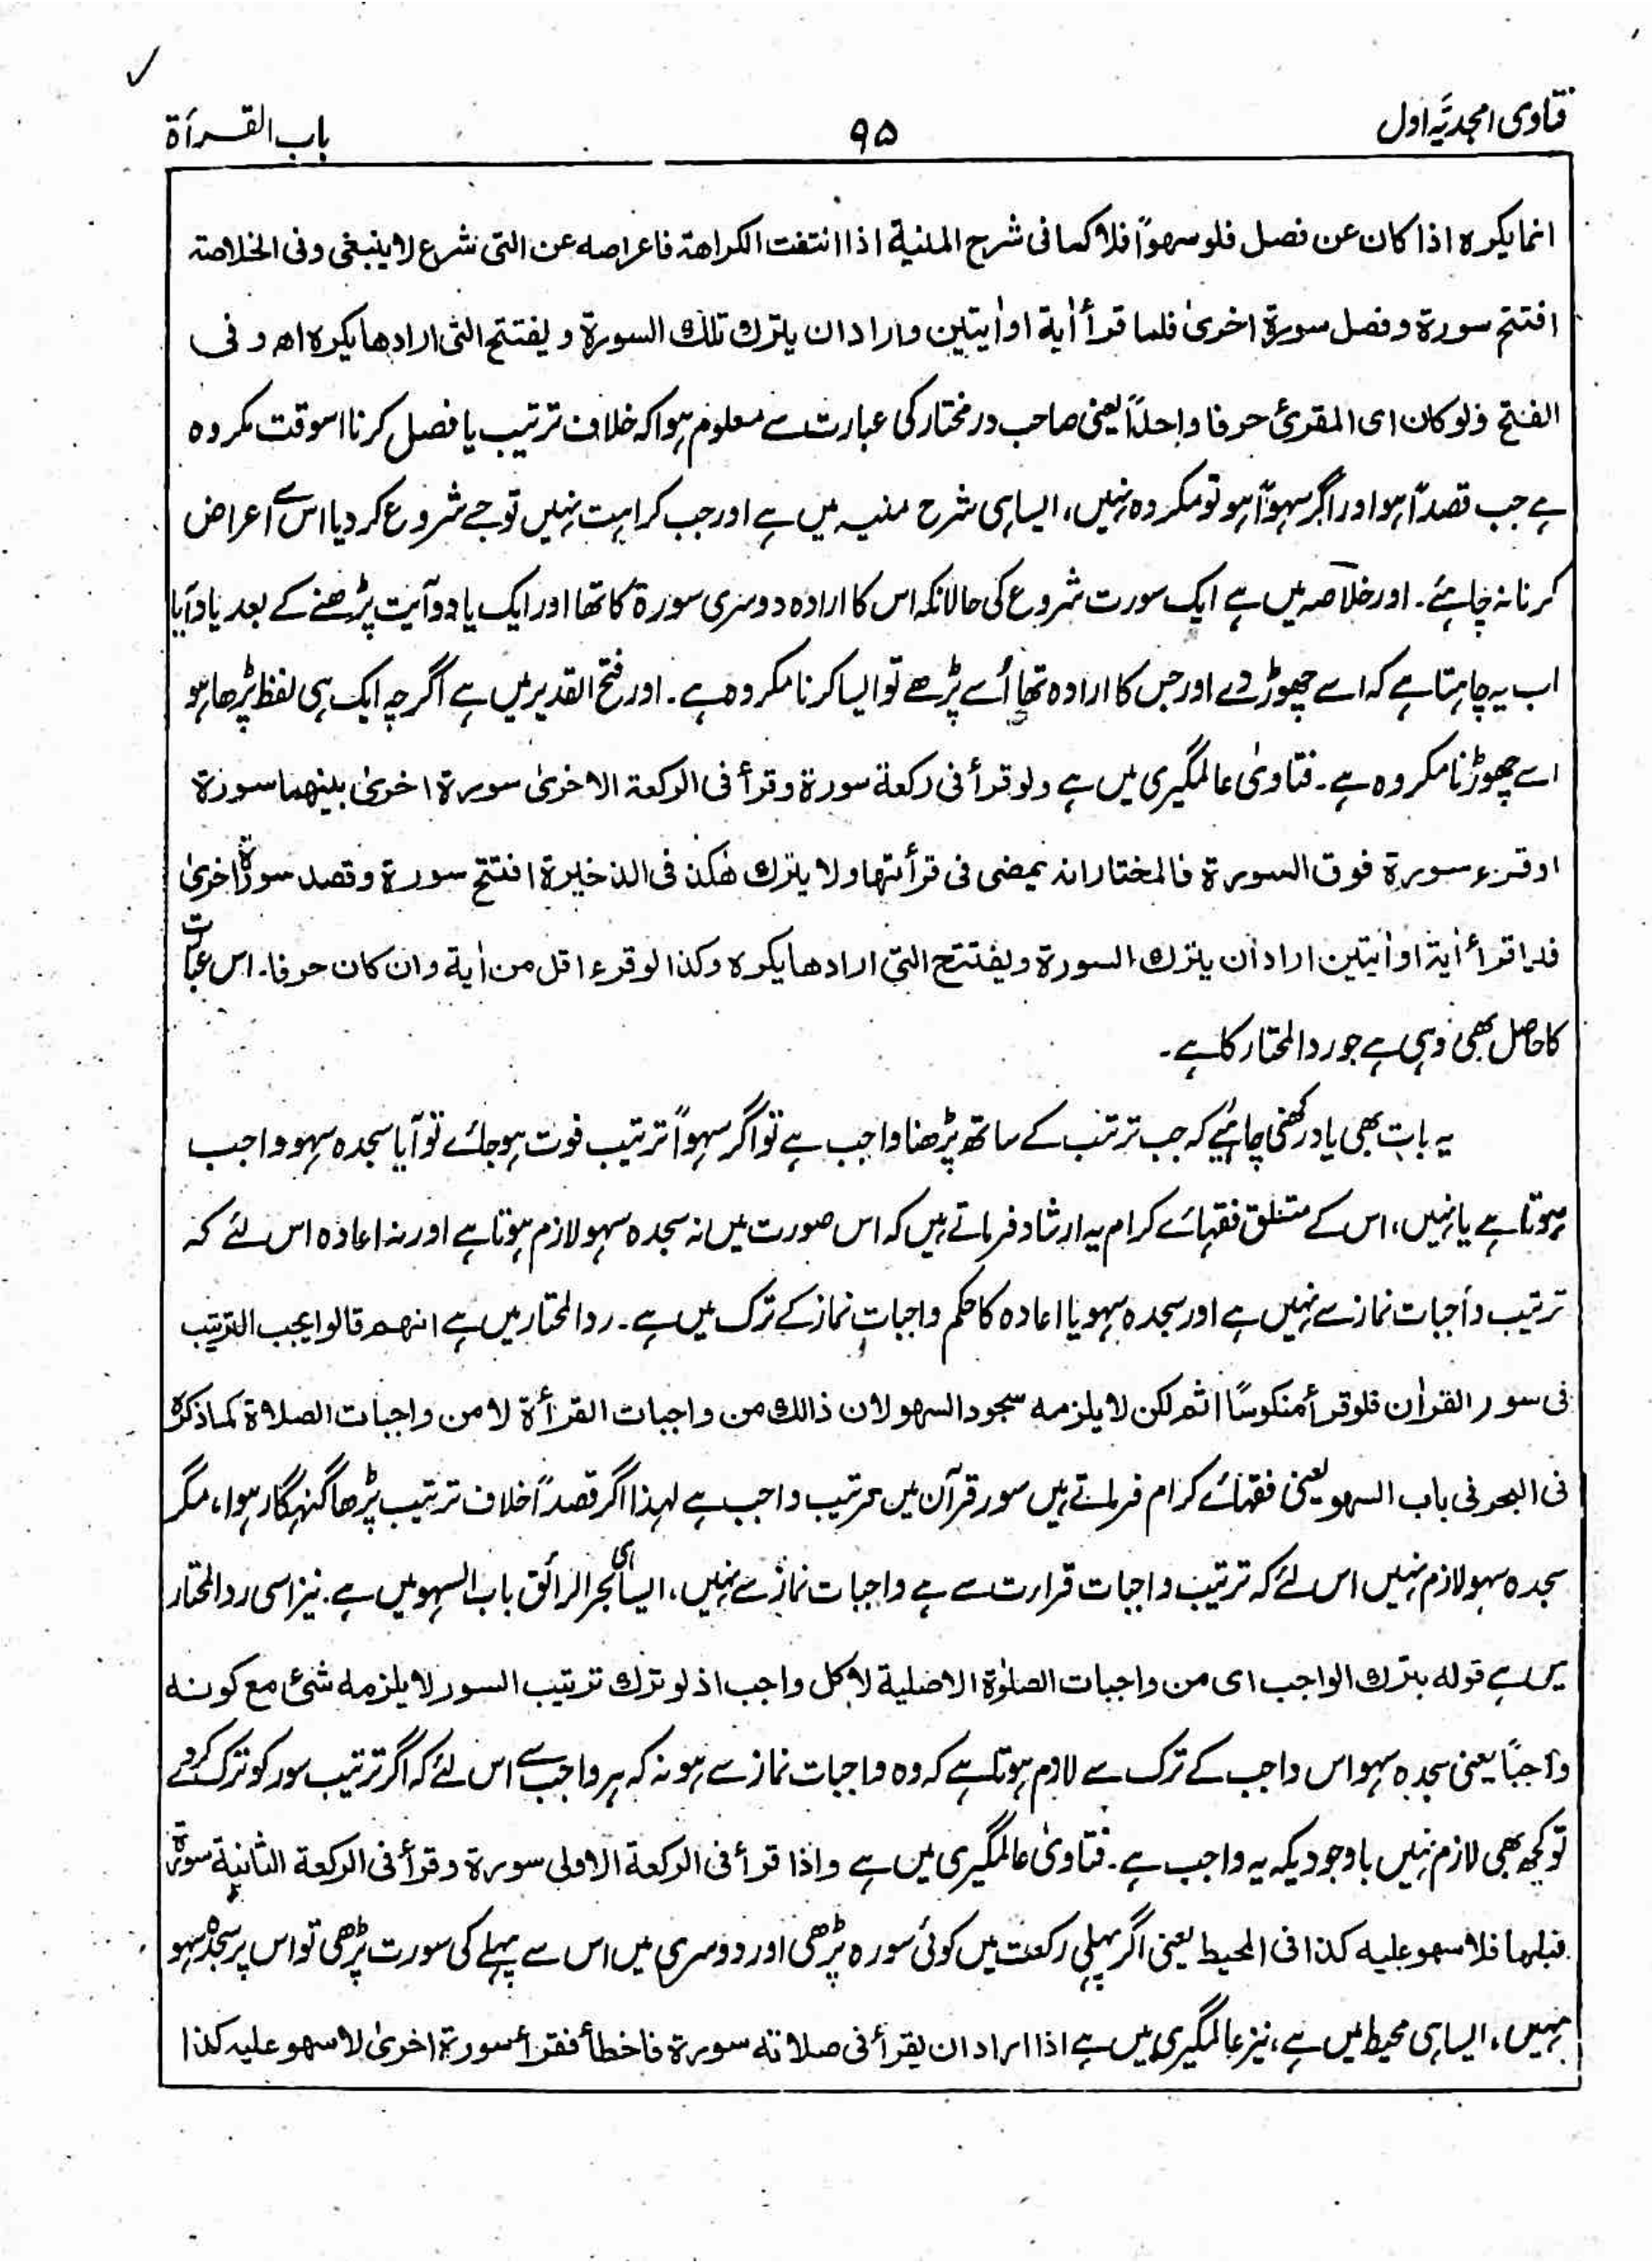 فتاوی امجدیہ اول ۹۵ باب القرأة
انما یکرہ اذا کان عن فصل فلو سهواً فلا کما فی شرح المنیة اذا انتفت الکراهة فاعراضه عن التی شرع لا ینبغی وفی الخلاصة
افتتح سورة وفصل سورة اخریٰ فلما قرأ اٰیة او اٰیتین واراد ان یترك تلك السورة ویفتتح التی ارادها یکره اھ وفی
الفتح ولو کان ای المقرئ حرفا واحداً یعنی صاحب در مختار کی عبارت سے معلوم ہوا کہ خلاف ترتیب یا فصل کرنا اسوقت مکروہ
ہے جب قصداً ہو اور اگر سہواً ہو تو مکروہ نہیں، ایسا ہی شرح منیہ میں ہے اور جب کراہت نہیں تو جسے شروع کردیا اس سے اعراض
کرنا نہ چاہئے۔ اور خلاصہ میں ہے ایک سورت شروع کی حالانکہ اس کا ارادہ دوسری سورۃ کا تھا اور ایک یا دو آیت پڑھنے کے بعد یاد آیا
اب یہ چاہتا ہے کہ اسے چھوڑ دے اور جس کا ارادہ تھا اُسے پڑھے تو ایسا کرنا مکروہ ہے۔ اور فتح القدیر میں ہے اگرچہ ایک ہی لفظ پڑھا ہو
اسے چھوڑنا مکروہ ہے۔ فتاویٰ عالمگیری میں ہے ولو قرأ فی رکعة سورة وقرأ فی الرکعة الاخریٰ سورة اخریٰ بینهما سورة
او قرء سورة فوق السورة فالمختار انه یمضی فی قرأتها ولا یترك هٰکذ فی الذخیرة افتتح سورة وقصد سورة اخریٰ
فلما قرأ اٰیة او اٰیتین اراد ان یترك السورة ویفتتح التی ارادها یکره وکذا لو قرء اقل من اٰیة وان کان حرفا۔ اس عبارت
کا حاصل بھی وہی ہے جو ردالمحتار کا ہے۔
یہ بات بھی یاد رکھنی چاہئیے کہ جب ترتیب کے ساتھ پڑھنا واجب ہے تو اگر سہواً ترتیب فوت ہو جائے تو آیا سجدہ سہو واجب
ہوتا ہے یا نہیں، اس کے متعلق فقہائے کرام یہ ارشاد فرماتے ہیں کہ اس صورت میں نہ سجدہ سہو لازم ہوتا ہے اور نہ اعادہ اس لئے کہ
ترتیب واجبات نماز سے نہیں ہے اور سجدہ سہو یا اعادہ کا حکم واجبات نماز کے ترک میں ہے۔ ردالمحتار میں ہے انهم قالوا یجب الترتیب
فی سور القراٰن فلو قرأ منکوسًا اثم لکن لا یلزمه سجود السهو لان ذالك من واجبات القرأة لا من واجبات الصلاة کما ذکره
فی البحر فی باب السهو یعنی فقہائے کرام فرماتے ہیں سور قرآن میں ترتیب واجب ہے لہذا اگر قصداً خلاف ترتیب پڑھا گنہگار ہوا، مگر
سجدہ سہو لازم نہیں اس لئے کہ ترتیب واجبات قرارت سے ہے واجبات نماز سے نہیں، ایسا ہی البحر الرائق باب السہو میں ہے۔ نیز اسی ردالمحتار
میں ہے قوله بترك الواجب ای من واجبات الصلوٰة الاصلیة لا کل واجب اذ لو ترك ترتیب السور لا یلزمه شئ مع کونه
واجبًا یعنی سجدہ سہو اس واجب کے ترک سے لازم ہوتا ہے کہ وہ واجبات نماز سے ہو نہ کہ ہر واجب سے اس لئے کہ اگر ترتیب سور کو ترک کردے
تو کچھ بھی لازم نہیں باوجودیکہ یہ واجب ہے۔ فتاویٰ عالمگیری میں ہے واذا قرأ فی الرکعة الاولی سورة وقرأ فی الرکعة الثانیة سورة
قبلها فلا سهو علیه کذا فی المحیط یعنی اگر پہلی رکعت میں کوئی سورہ پڑھی اور دوسری میں اس سے پہلے کی سورت پڑھی تو اس پر سجدہ سہو
نہیں، ایسا ہی محیط میں ہے، نیز عالمگیری میں ہے اذا اراد ان یقرأ فی صلاته سورة فاخطأ فقرأ سورة اخریٰ لا سهو علیه کذا